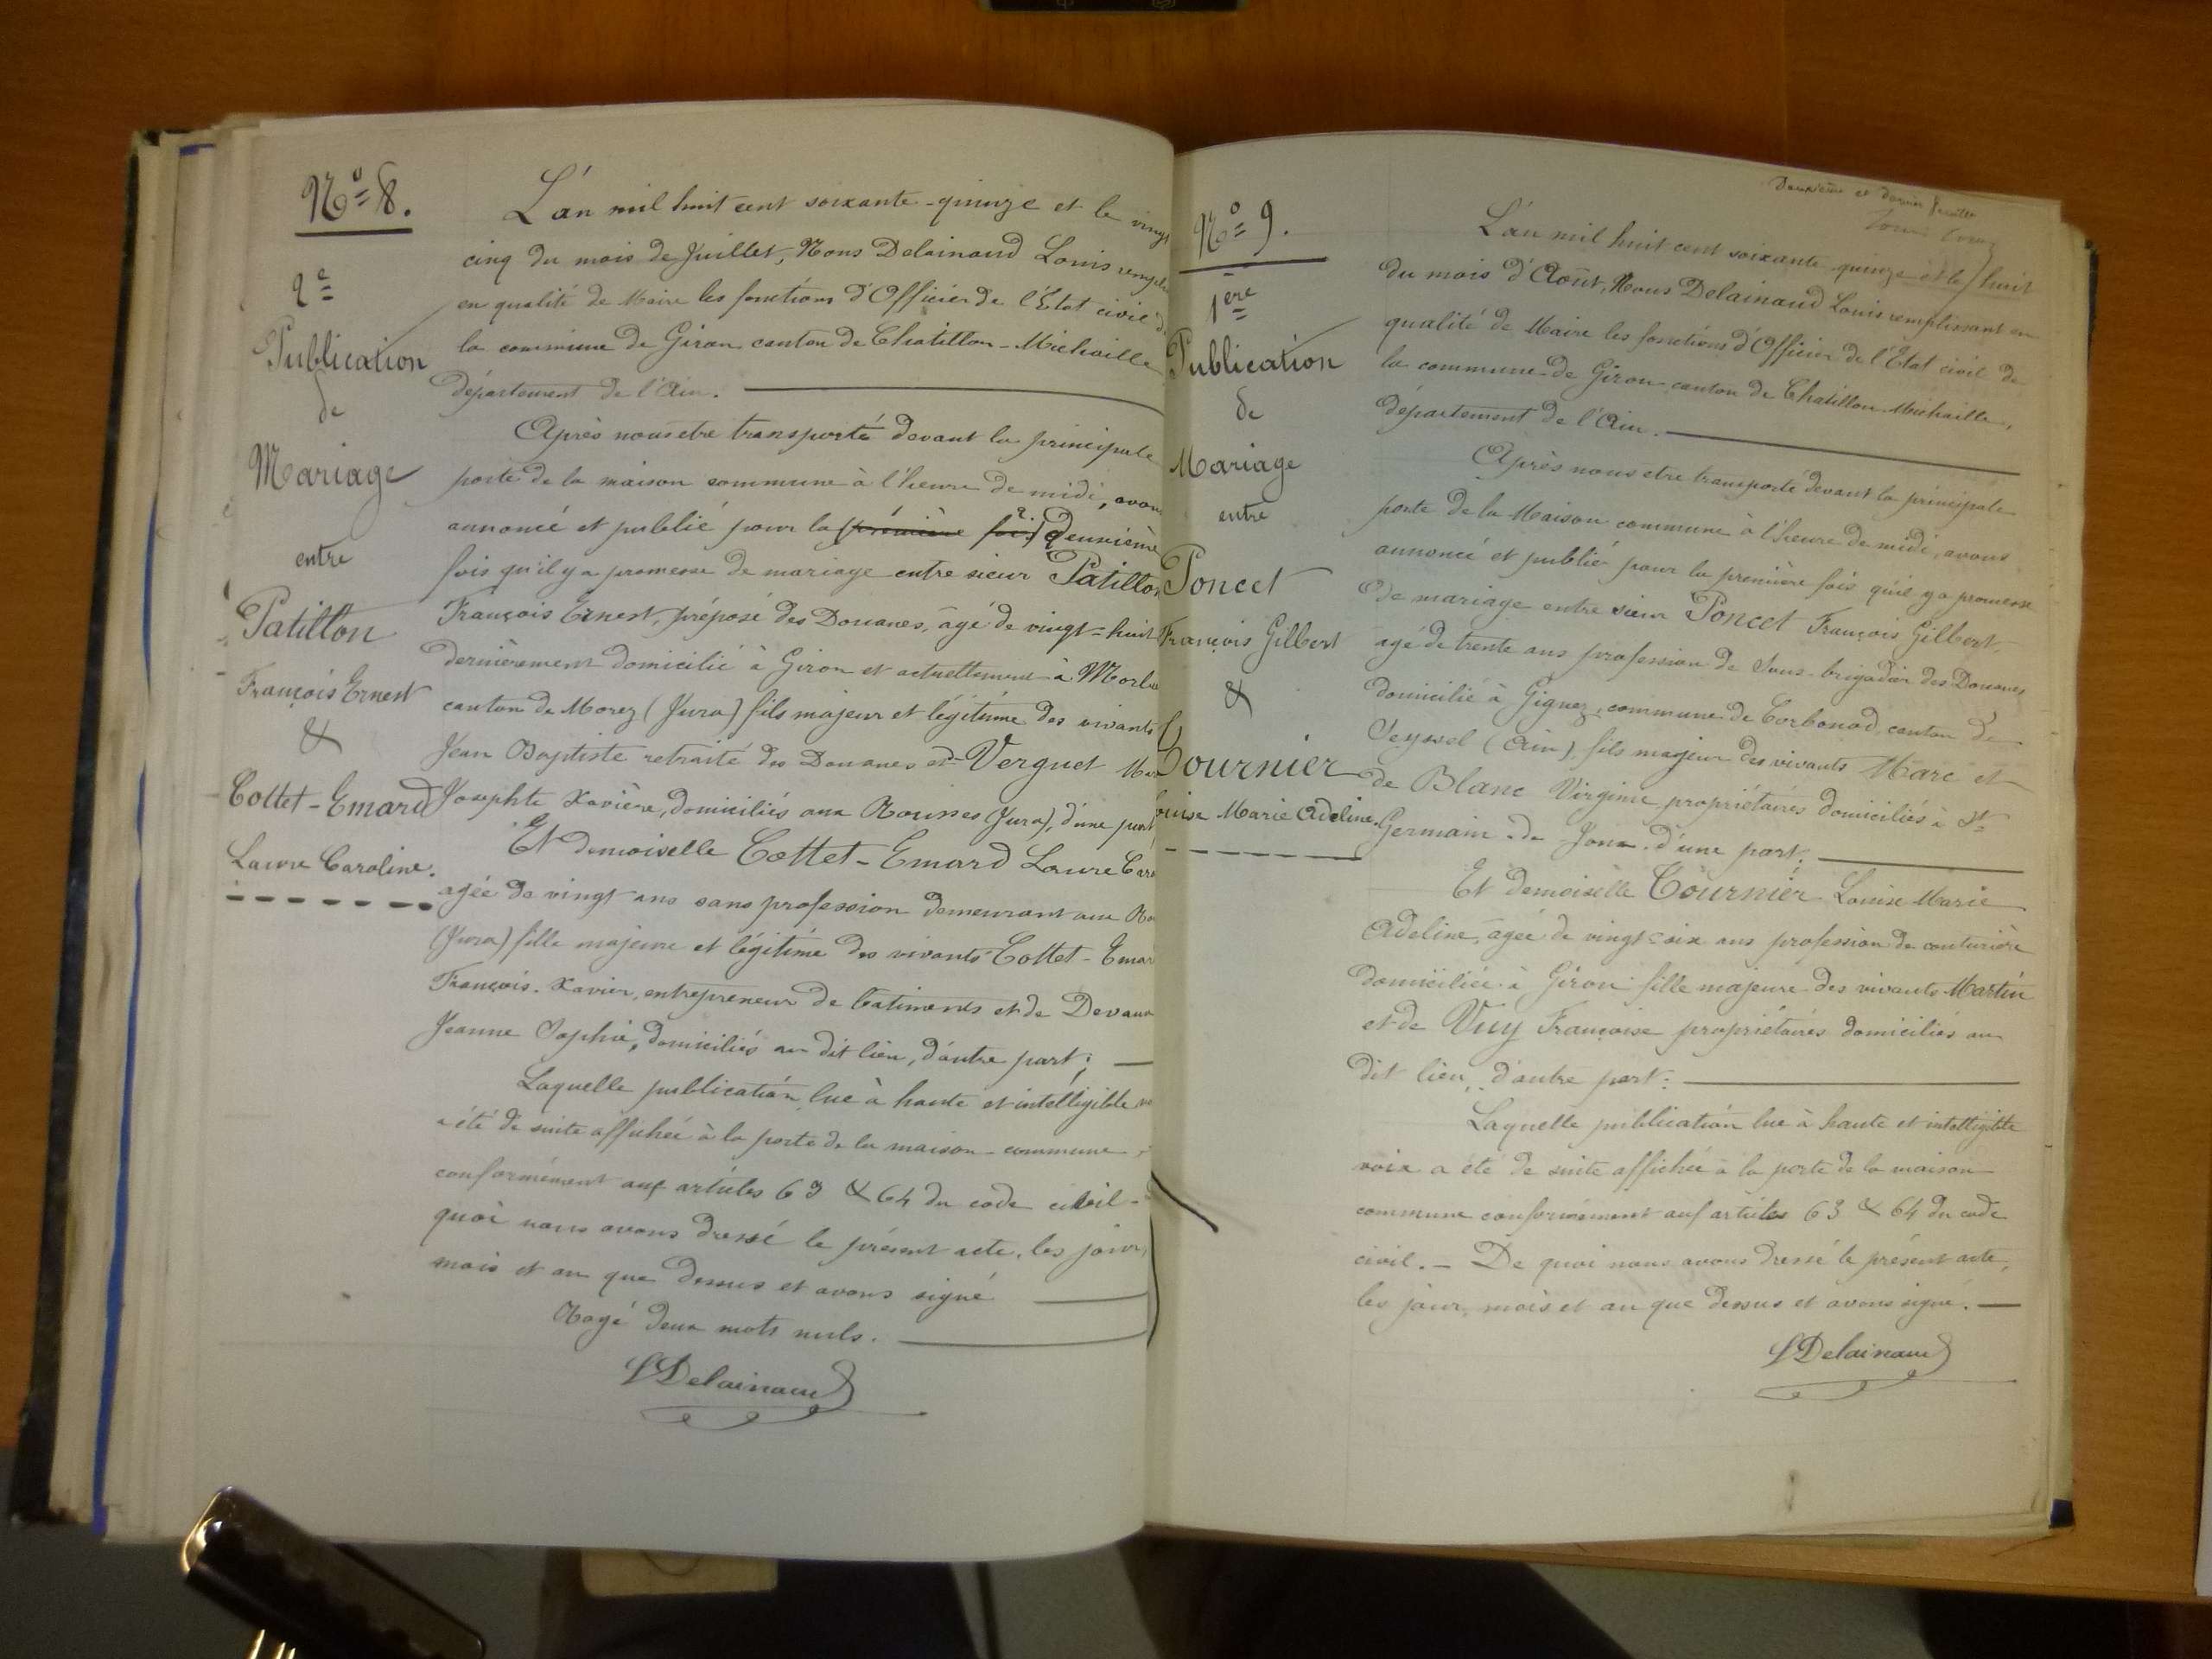 Nº 8.
2e
Publication
de
Mariage
entre
Patillon
François Ernest
&
Cottet-Emard
Laure Caroline.
L'an mil huit cent soixante-quinze et le vingt
cinq du mois de Juillet, Nous Delainaud Louis
en qualité de Maire les fonctions d'Officier de l'Etat civil
la commune de Giron canton de Chatillon-Michaille
département de l'Ain.
Après nous etre transporté devant la principale
porte de la maison commune à l'heure de midi, avons
annoncé et publié pour la première fois deuxième
fois qu'il y a promesse de mariage entre sieur Patillon
François Ernest, préposé des Douanes, âgé de vingt-huit
dernièrement domicilié à Giron et actuellement à
canton de Morez (Jura) fils majeur et légitime des vivants
Jean Baptiste retraité des Douanes et Verguet
Josephte Xavière, domiciliés aux Rousses (Jura), d'une part
Et demoiselle Cottet-Emard Laure
agée de vingt ans sans profession demeurant aux
(Jura) fille majeure et légitime des vivants Cottet-
François-Xavier, entrepreneur de batiments et de
Jeanne Sophie, domiciliés au dit lieu, d'autre part;
Laquelle publication lue à haute et intelligible
a été de suite affichée à la porte de la maison-commune,
conformément aux articles 63 & 64 du code civil-
quoi nous avons dressé le présent acte, les jour,
mois et an que dessus et avons signé
Rayé deux mots nuls.
LDelainaud
Deuxième et dernier feuillet
Nº 9.
1ere
Publication
de
Mariage
entre
Poncet
François Gilbert
&
Tournier
Marie Adeline.
L'an mil huit cent soixante quinze et le huit
du mois d'Aout, Nous Delainaud Louis remplissant en
qualité de Maire les fonctions d'Officier de l'Etat civil de
la commune de Giron canton de Chatillon-Michaille,
département de l'Ain.
Après nous etre transporté devant la principale
porte de la Maison commune à l'heure de midi, avons
annoncé et publié pour la première fois qu'il y a promesse
de mariage entre sieur Poncet François Gilbert,
agé de trente ans profession de Sous-brigadier des Douanes
domicilié à Gignez, commune de Corbonod canton de
Seyssel (Ain) fils majeur des vivants Marc et
de Blanc Virginie propriétaires domiciliés à St
Germain-de Joux d'une part;
Et demoiselle Tournier Louise Marie
Adeline, agée de vingt six ans profession de couturière
domiciliée à Giron fille majeure des vivants Martin
et de Vuy Françoise propriétaires domiciliés au
dit lieu, d'autre part:
Laquelle publication lue à haute et intelligible
voix a été de suite affichée à la porte de la maison
commune conformément aux articles 63 & 64 du code
civil. - De quoi nous avons dressé le présent acte,
les jour, mois et an que dessus et avons signé.
LDelainaud